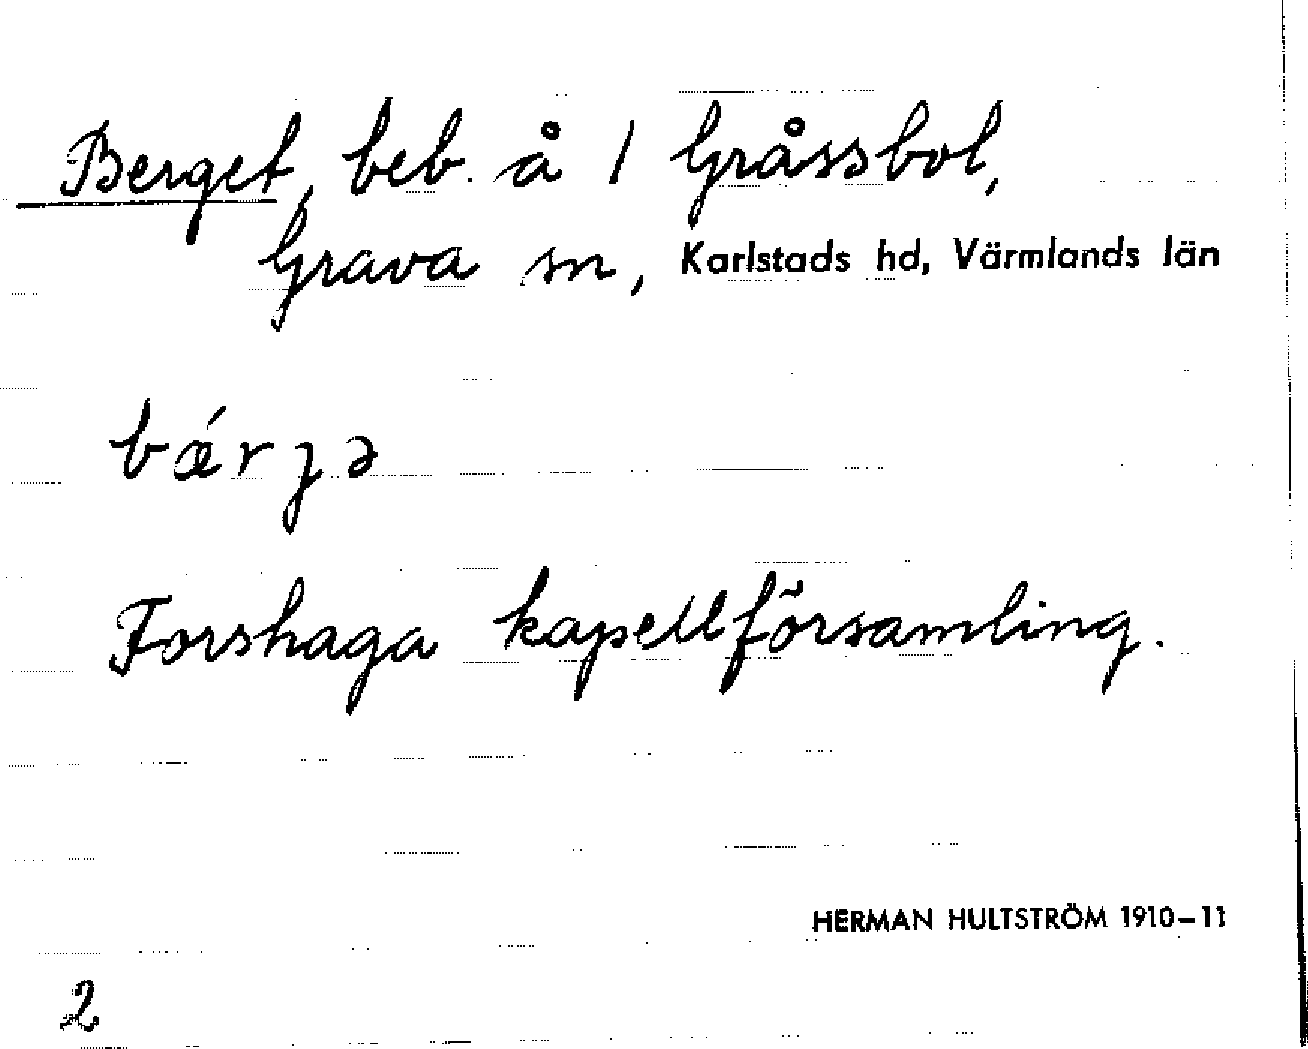 Berget, beb. å 1 Gråssbol,
Grava sn, Karlstads hd, Värmlands län
bǽrɟə
Forshaga kapellförsamling.
HERMAN HULTSTRÖM 1910–11
2